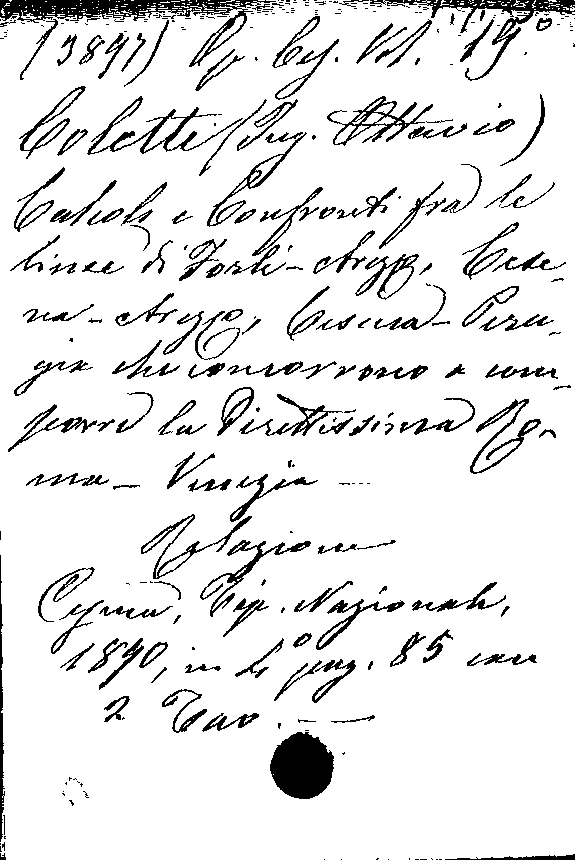 (3897) Op. Ces. Vol. 19º
Coletti (Ing. Ottavio)
Calcoli e Confronti fra le
linee di Forlì-Arezzo, Cese-
na-Arezzo, Cesena-Peru-
gia che concorrono a com-
porre la Direttissima Ro-
ma-Venezia —
Relazione
Cesena, Tip. Nazionale,
1890, in 4º pag. 85 con
2 Tav. —